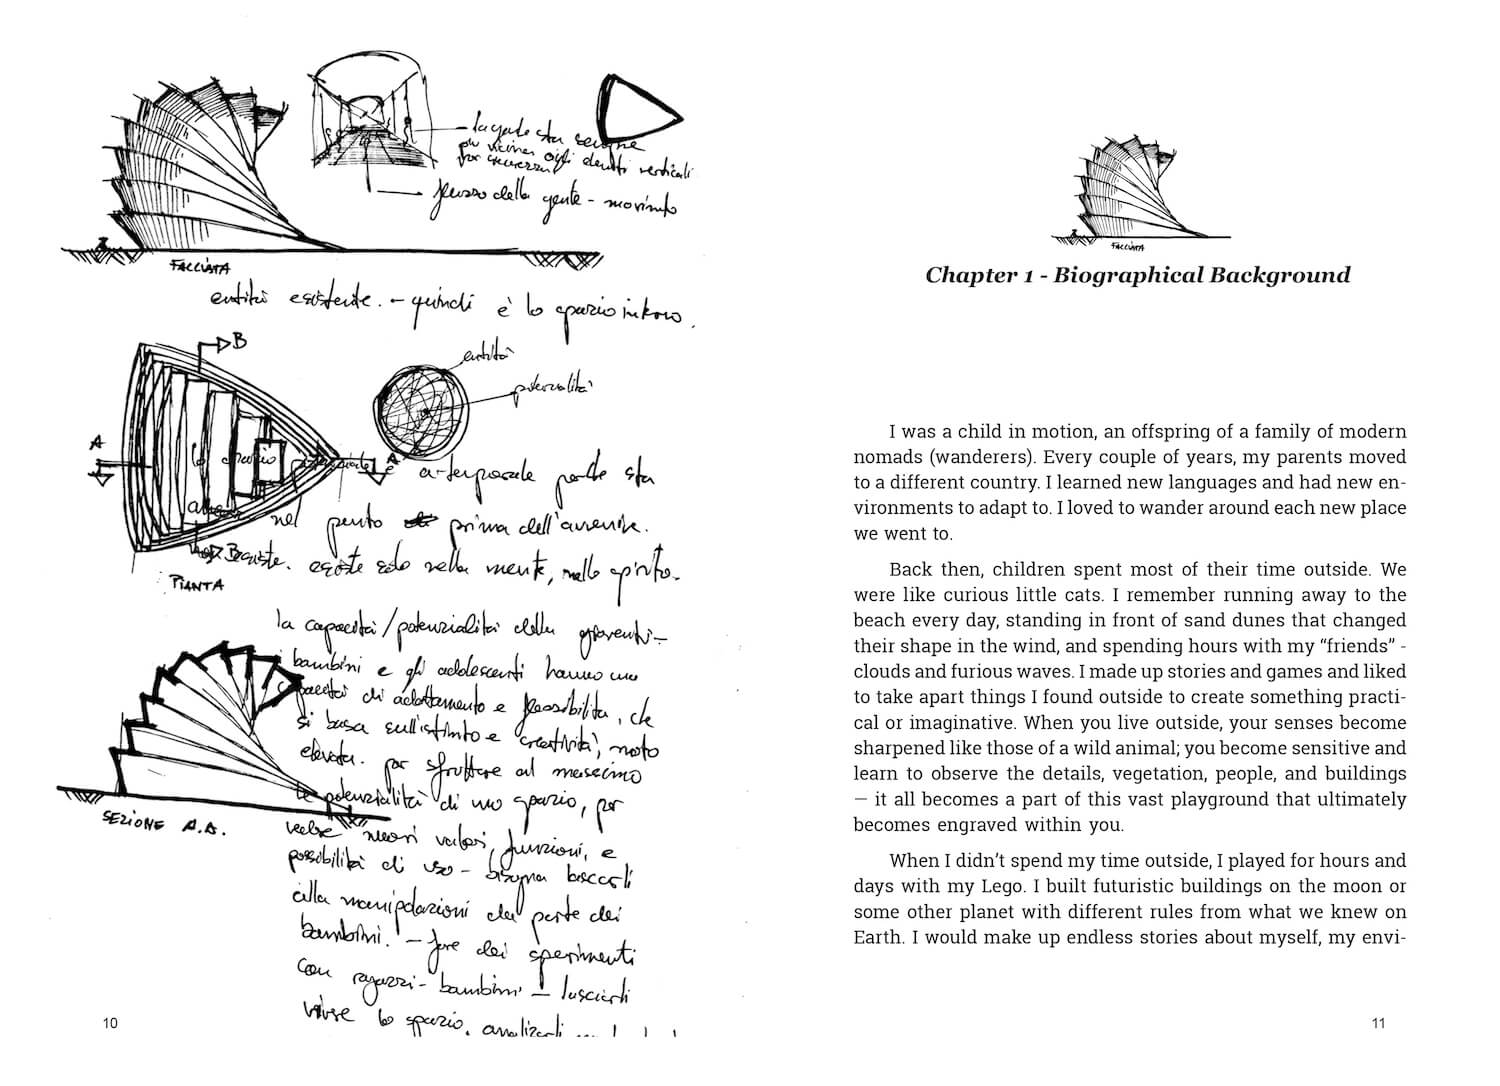 la gente sta sempre
più vicina agli elementi verticali
per sicurezza
flusso della gente - movimento
FACCIATA
entità esistente. - quindi è lo spazio intorno.
B
entità
potenzialità
A
A
lo spazio è a-temporale perché sta
nel punto prima dell'avvenire.
B esiste solo nella mente, nello spirito.
PIANTA
la capacità/potenzialità della gioventù -
i bambini e gli adolescenti hanno una
capacità di adattamento e flessibilità, che
si basa sull'istinto e creatività, molto
elevata. per sfruttare al massimo
le potenzialità di uno spazio, per
SEZIONE A.A.
nuovi valori, funzioni, e
possibilità di uso - bisogna lasciarli
alla manipolazioni da parte dei
bambini. - fare dei sperimenti
con ragazzi - bambini - lasciarli
vivere lo spazio, analizzarli
10
FACCIATA
Chapter 1 - Biographical Background
I was a child in motion, an offspring of a family of modern
nomads (wanderers). Every couple of years, my parents moved
to a different country. I learned new languages and had new en-
vironments to adapt to. I loved to wander around each new place
we went to.
Back then, children spent most of their time outside. We
were like curious little cats. I remember running away to the
beach every day, standing in front of sand dunes that changed
their shape in the wind, and spending hours with my “friends” -
clouds and furious waves. I made up stories and games and liked
to take apart things I found outside to create something practi-
cal or imaginative. When you live outside, your senses become
sharpened like those of a wild animal; you become sensitive and
learn to observe the details, vegetation, people, and buildings
— it all becomes a part of this vast playground that ultimately
becomes engraved within you.
When I didn’t spend my time outside, I played for hours and
days with my Lego. I built futuristic buildings on the moon or
some other planet with different rules from what we knew on
Earth. I would make up endless stories about myself, my envi-
11